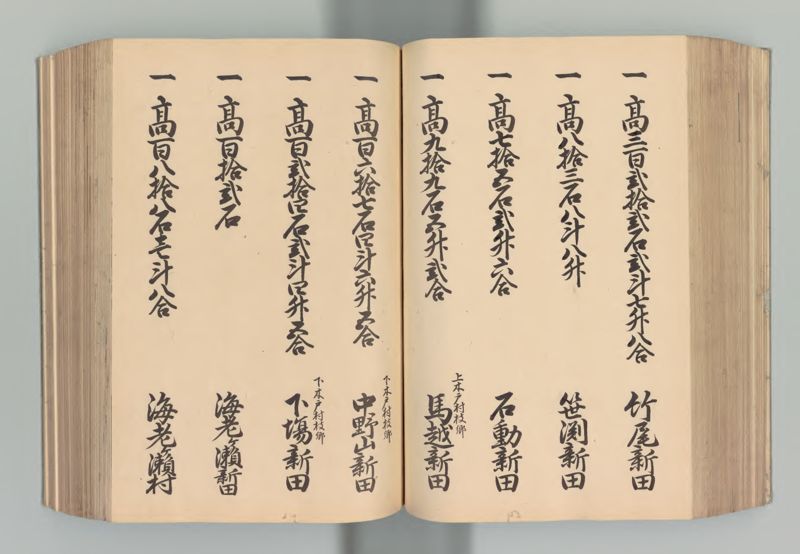 一 高三百弐拾弐石弐斗七升八合 竹尾新田
一 高八拾三石八斗八升 笹渕新田
一 高七拾五石弐升六合 石動新田
上木戸村枝郷
一 高九拾九石五升弐合 馬越新田
下木戸村枝郷
一 高百六拾七石四斗六升五合 中野山新田
下木戸村枝郷
一 高百弐拾四石弐斗四升五合 下場新田
一 高百拾弐石 海老ヶ瀬新田
一 高百八拾八石壱斗八合 海老ヶ瀬村